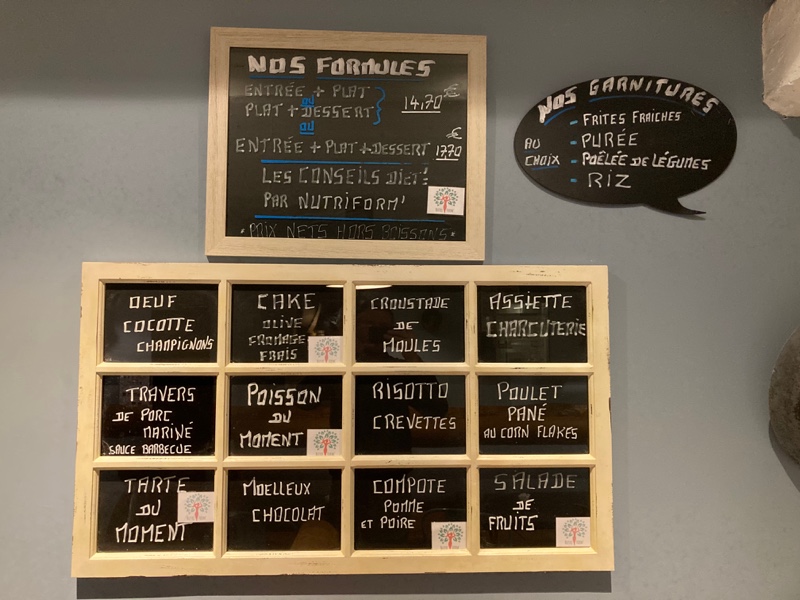 NOS FORMULES
ENTRÉE + PLAT
OU
PLAT + DESSERT
14,70 €
OU
ENTRÉE + PLAT + DESSERT 17,70 €
LES CONSEILS DIET'
PAR NUTRIFORM'
* PRIX NETS HORS BOISSONS *
NOS GARNITURES
AU CHOIX
- FRITES FRAICHES
- PURÉE
- POÊLÉE DE LÉGUMES
- RIZ
OEUF
COCOTTE
CHAMPIGNONS
CAKE
OLIVE
FROMAGE
FRAIS
CROUSTADE
DE
MOULES
ASSIETTE
CHARCUTERIE
TRAVERS
DE PORC
MARINÉ
SAUCE BARBECUE
POISSON
DU
MOMENT
RISOTTO
CREVETTES
POULET
PANÉ
AU CORN FLAKES
TARTE
DU
MOMENT
MOELLEUX
CHOCOLAT
COMPOTE
POMME
ET POIRE
SALADE
DE
FRUITS